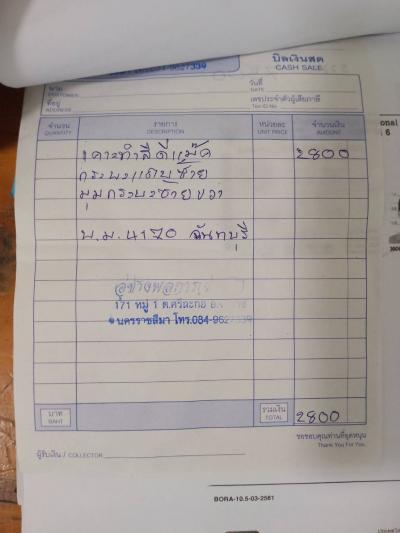 084-9627339
บิลเงินสด
CASH SALE
นาม
CUSTOMER
วันที่
DATE
ที่อยู่
ADDRESS
เลขประจำตัวผู้เสียภาษี
Tax ID No.
จำนวน
QUANTITY
รายการ
DESCRIPTION
หน่วยละ
UNIT PRICE
จำนวนเงิน
AMOUNT
เคาะทำสีดีแม๊ค 2800
กระบะแคบซ้าย
มุมกระบะซ้ายขวา
บ.ม. 4170 จันทบุรี
อู่ช่างพล
171 หมู่ 1 ต.ศรีละกอ อ.
นครราชสีมา โทร.084-9627339
บาท
BAHT
รวมเงิน
TOTAL
2800
ขอขอบคุณท่านที่อุดหนุน
Thank You For You.
ผู้รับเงิน / COLLECTOR
onal
6
BORA-10.5-03-2561